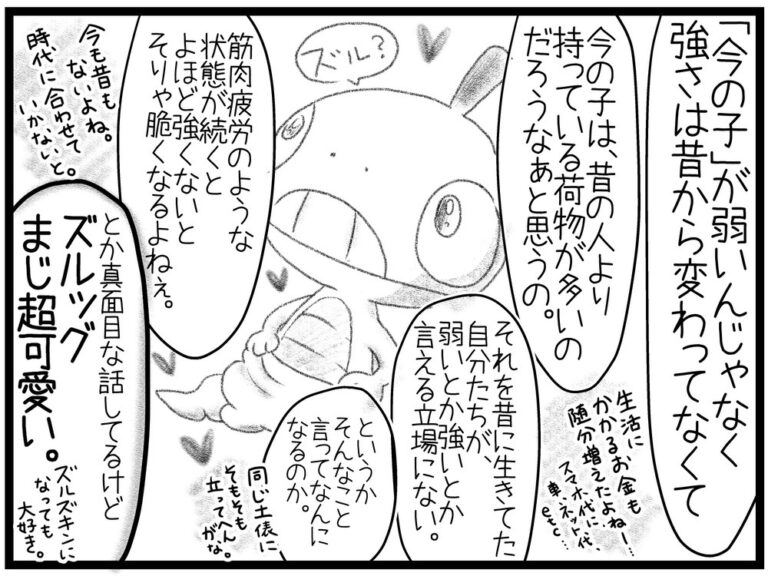 「今の子」が弱いんじゃなく
強さは昔から変わってなくて
今の子は、昔の人より
持っている荷物が多いの
だろうなぁと思うの。
生活に
かかるお金も
随分増えたよねー…
スマホ代に、
車、ネット代
etc…
ズル？
それを昔に生きてた
自分たちが、
弱いとか強いとか
言える立場にない。
というか
そんなこと
言ってなんに
なるのか。
同じ土俵に
そもそも
立ってへん
がな。
筋肉疲労のような
状態が続くと
よほど強くないと
そりゃ脆くなるよねぇ。
今も昔も
ないよね。
時代に合わせて
いかないと。
とか真面目な話してるけど
ズルッグ
まじ超可愛い。
ズルズキンに
なっても
大好き。